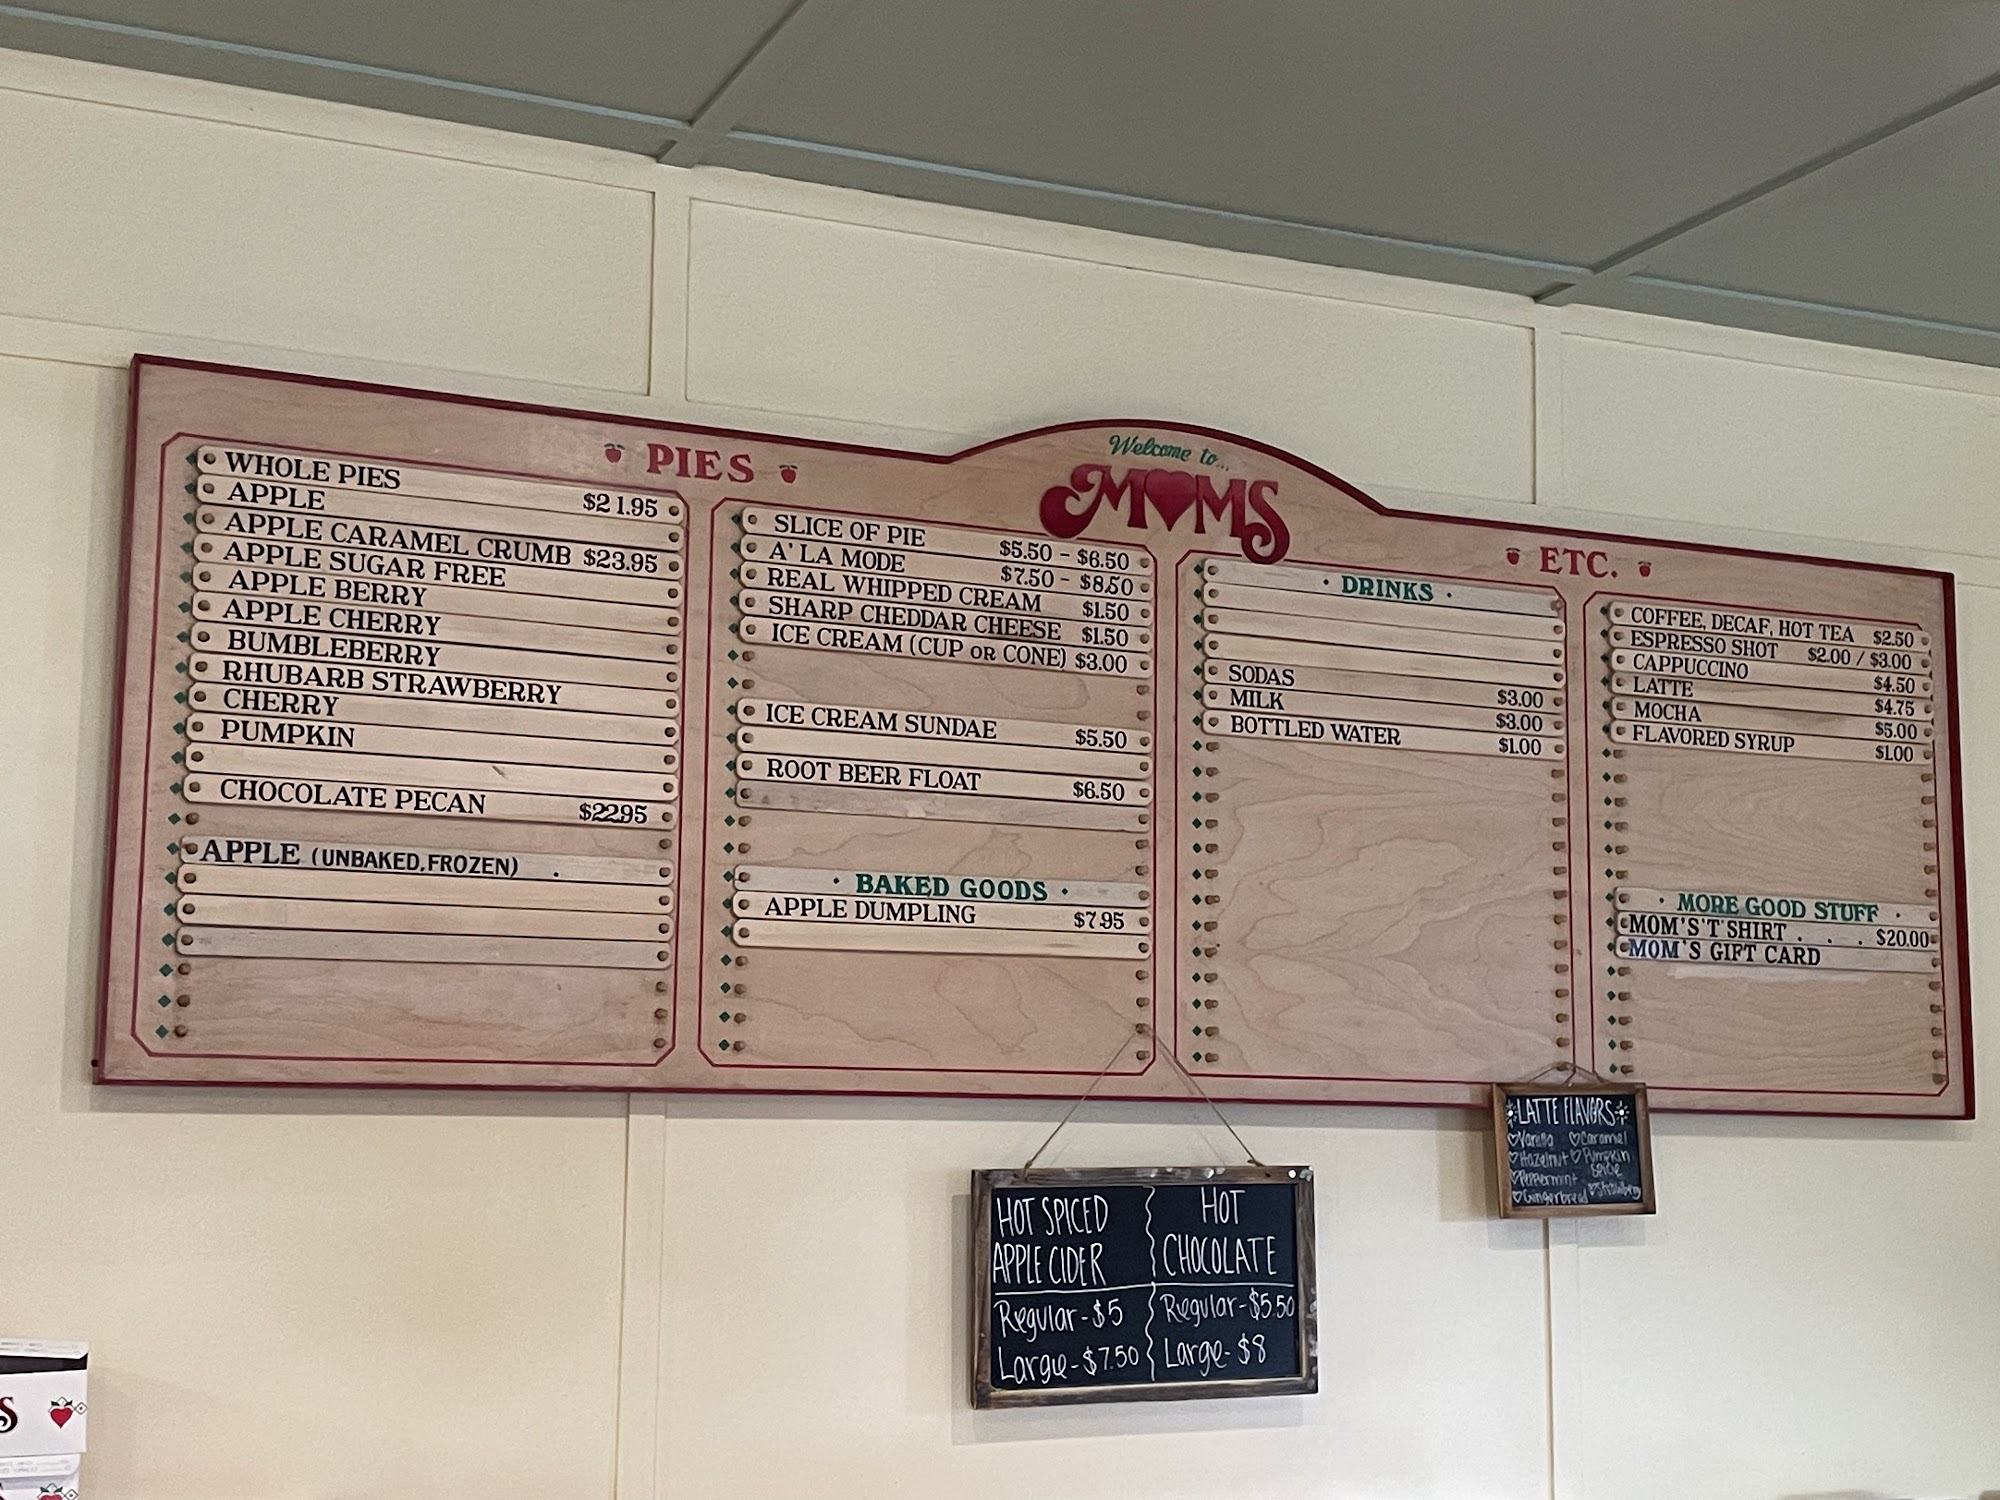 Welcome to...
MOMS
PIES
WHOLE PIES $21.95
APPLE
APPLE CARAMEL CRUMB $23.95
APPLE SUGAR FREE
APPLE BERRY
APPLE CHERRY
BUMBLEBERRY
RHUBARB STRAWBERRY
CHERRY
PUMPKIN
CHOCOLATE PECAN $22.95
APPLE (UNBAKED, FROZEN) .
SLICE OF PIE $5.50 - $6.50
A' LA MODE $7.50 - $8.50
REAL WHIPPED CREAM $1.50
SHARP CHEDDAR CHEESE $1.50
ICE CREAM (CUP OR CONE) $3.00
ICE CREAM SUNDAE $5.50
ROOT BEER FLOAT $6.50
· BAKED GOODS ·
APPLE DUMPLING $7.95
ETC.
· DRINKS ·
SODAS $3.00
MILK $3.00
BOTTLED WATER $1.00
COFFEE, DECAF, HOT TEA $2.50
ESPRESSO SHOT $2.00 / $3.00
CAPPUCCINO $4.50
LATTE $4.75
MOCHA $5.00
FLAVORED SYRUP $1.00
· MORE GOOD STUFF ·
MOM'S 'T' SHIRT . . . $20.00
MOM'S GIFT CARD
HOT SPICED
APPLE CIDER
Regular - $5
Large - $7.50
HOT
CHOCOLATE
Regular - $5.50
Large - $8
LATTE FLAVORS
Vanilla Caramel
Hazelnut Pumpkin
Spice
Peppermint
Gingerbread Strawberry
S